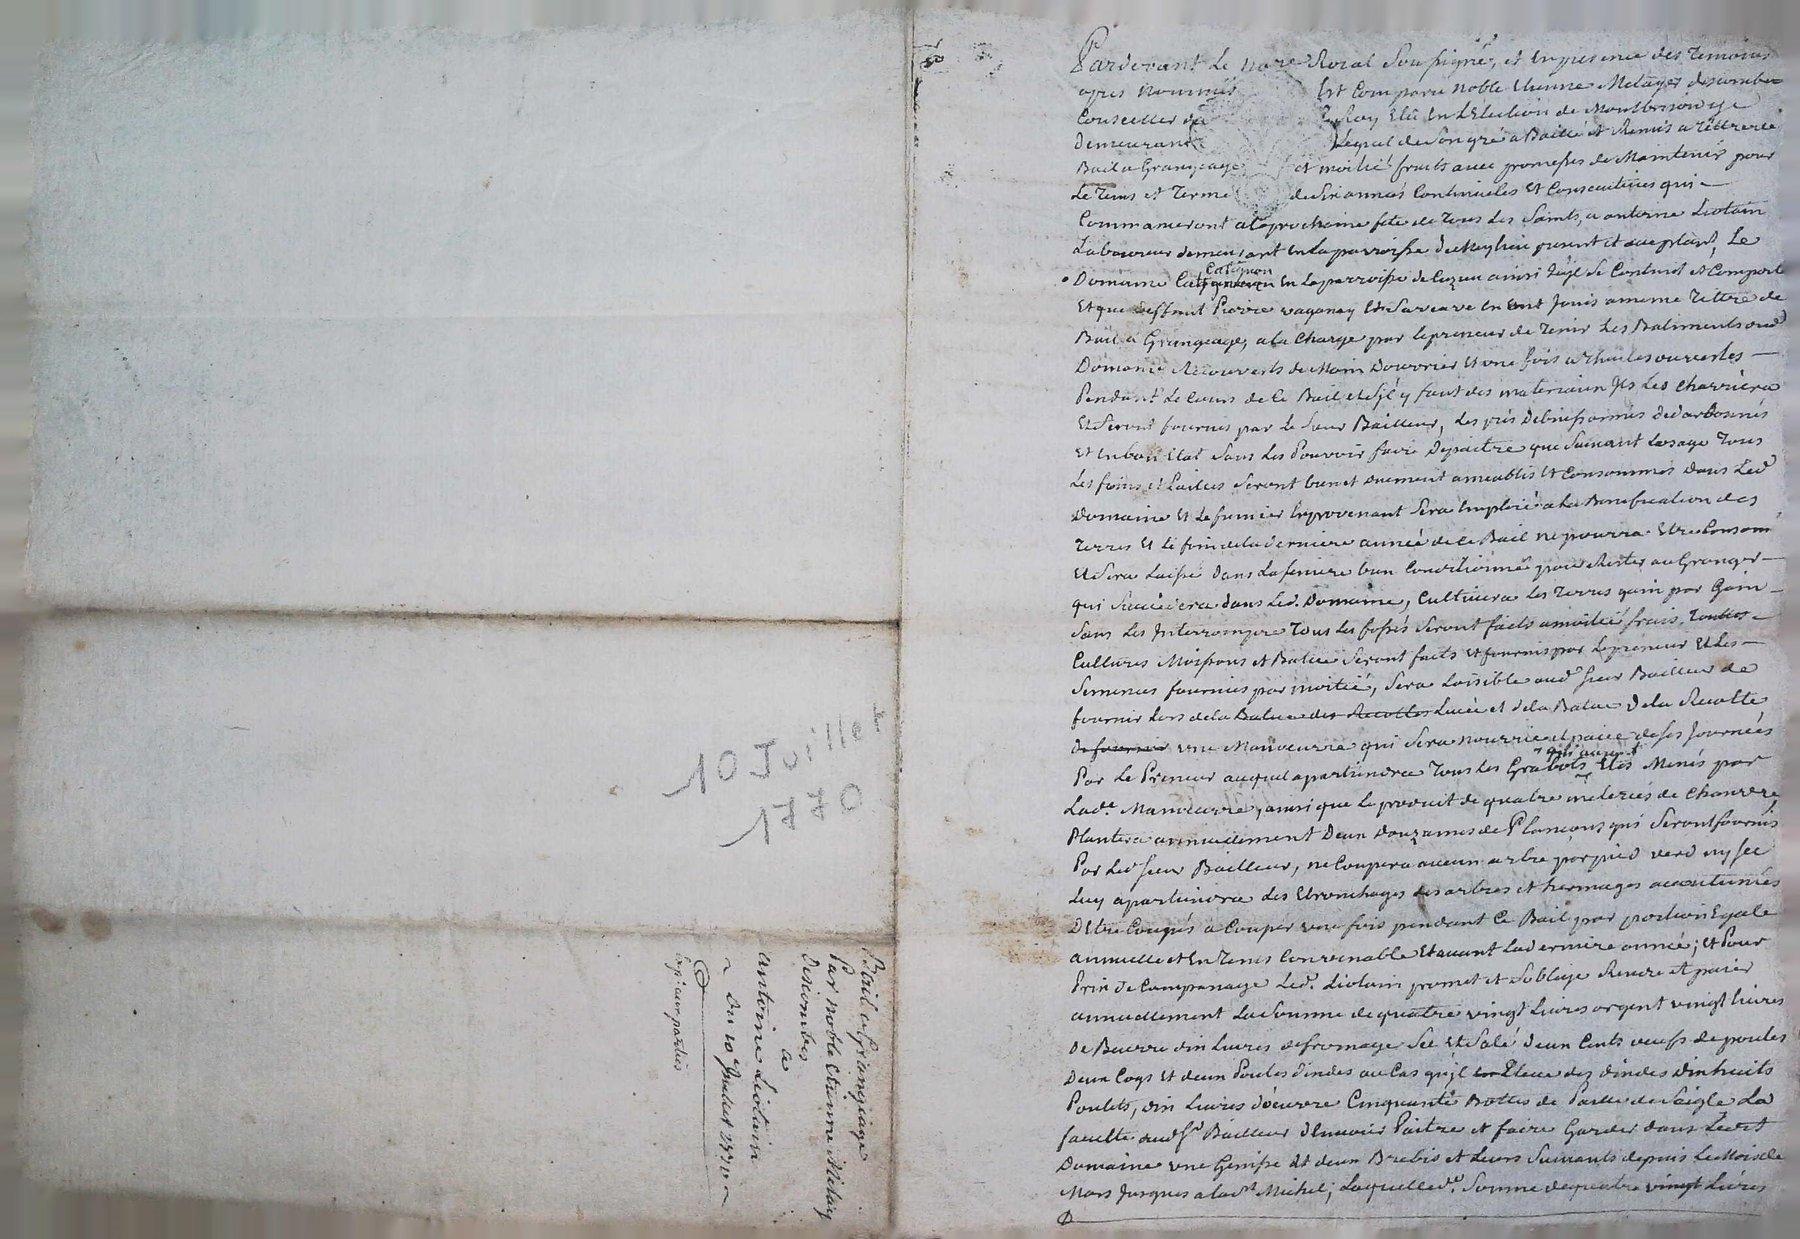 10 Juille
1770
Bail a Grangeage
Par noble Etienne Metayer
Descombes
a
antoine Liotain
Du 10 Juillet 1770
Expedié aux parties
Pardevant Le no.re Roial Soussigné, et En presence des Temoins
apres Nommés Est Comparu noble Etienne Metayer descombes
Conseiller du Roy Elû En L'Election de Montbrison y
Demeurant Lequel de Son gré a Baillé et Remis a Tittre de
Bail a Grangeage et moitié fruits avec promesses de Maintenir pour
Le Tems et Terme de Six années Continuelles Et Consecutives qui
Commanceront a la prochaine fete de Tous Les Saints, a antoine Liotain
Laboureur demeurant En La parroisse de present et acceptant, Le
Domaine Catignon En La parroisse de ainsi qu'il Se Contient et Comporte
Et que deffunt Pierre vaganay Et Sa veuve En ont Jouis a meme Tittre de
Bail a Grangeage, a la Charge par le preneur de Tenir Les Batiments dud.
Domaine Recouverts de Main D'ouvrier Et une fois a Thuiles ouvertes
Pendant Le Cours de Ce Bail et S'il y faut des materiaux Il Les Charriera
Et Seront fournis par le Sieur Bailleur, Les prés
Et En bon Etat Sans Les Pouvoir faire Depaitre que Suivant L'usage Tous
Les foins et Pailles Seront bien et duement ameublis Et Consommés dans Led.
Domaine Et Le fumier En provenant Sera Emploié a La Bonification des
Terres Et Le foin de La derniere année de Ce Bail ne pourra Etre Consom
Et Sera Laissé dans La feniere bien Conditionné pour Rester au Granger
qui Succedera dans Led. Domaine, Cultivera Les Terres gain par Gain
Sans Les Interrompre Tous Les fossés Seront faits a moitié frais, Touttes
Cultures Moissons et Batue Seront faits Et fournis par Le preneur Et Les
Semences fournies par moitié, Sera Loisible aud. Sieur Bailleur de
fournir Lors de La Batue des Recoltes Levée et de La Batue de La Recolte
de fournir une Manoeuvre qui Sera nourrie et paiée de Ses Journées
Par Le Preneur auquel apartiendra Tous Les Grabots qui auront Etés Menés par
Lad.e Manoeuvre, ainsi que Le produit de quatre meterées de Chanvre
Plantera annuellement Deux Douzaines de Plançons qui Seront fournis
Par Led. Sieur Bailleur, ne Coupera aucun arbre par pied verd ny Sec
Luy apartiendra Les Ebranchages des arbres et hermages accoutumés
D'Etre Coupés a Couper une fois pendant Ce Bail par portion Egale
annuelle et En Tems Convenable Et avant La derniere année; Et Pour
Prix de Companage Led. Liotain promet et S'oblige Rendre Et paier
annuellement La Somme de quatre vingt Livres argent vingt livres
De Beurre dix Livres de fromage Sec Et Salé deux Cents oeufs de poules
Deux Coqs Et deux Poules d'indes au Cas qu'il En Eleve des dindes dix huits
Poulets, dix Livres d'oeuvre Cinquante Bottes de Paille de Saigle La
faculté aud. Sr Bailleur D'Envoier Paitre et faire Garder dans Ledit
Domaine une Genisse Et deux Brebis et Leurs Suivants depuis Le Mois de
Mars Jusques a La St Michel; Laquelle d.e Somme de quatre vingt Livres